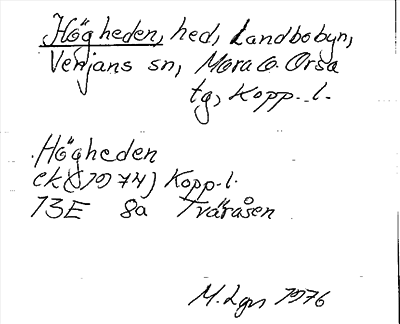 Högheden, hed, Landbobyn,
Venjans sn, Mora o. Orsa
tg, Kopp. l.
Högheden
ek (1974) Kopp. l.
13E 8a Tväråsen
M. Lgn 1976